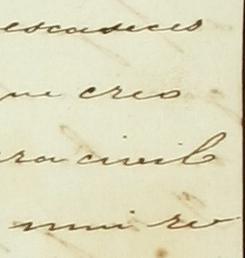 escaseces
que creo
ra civil
mui re